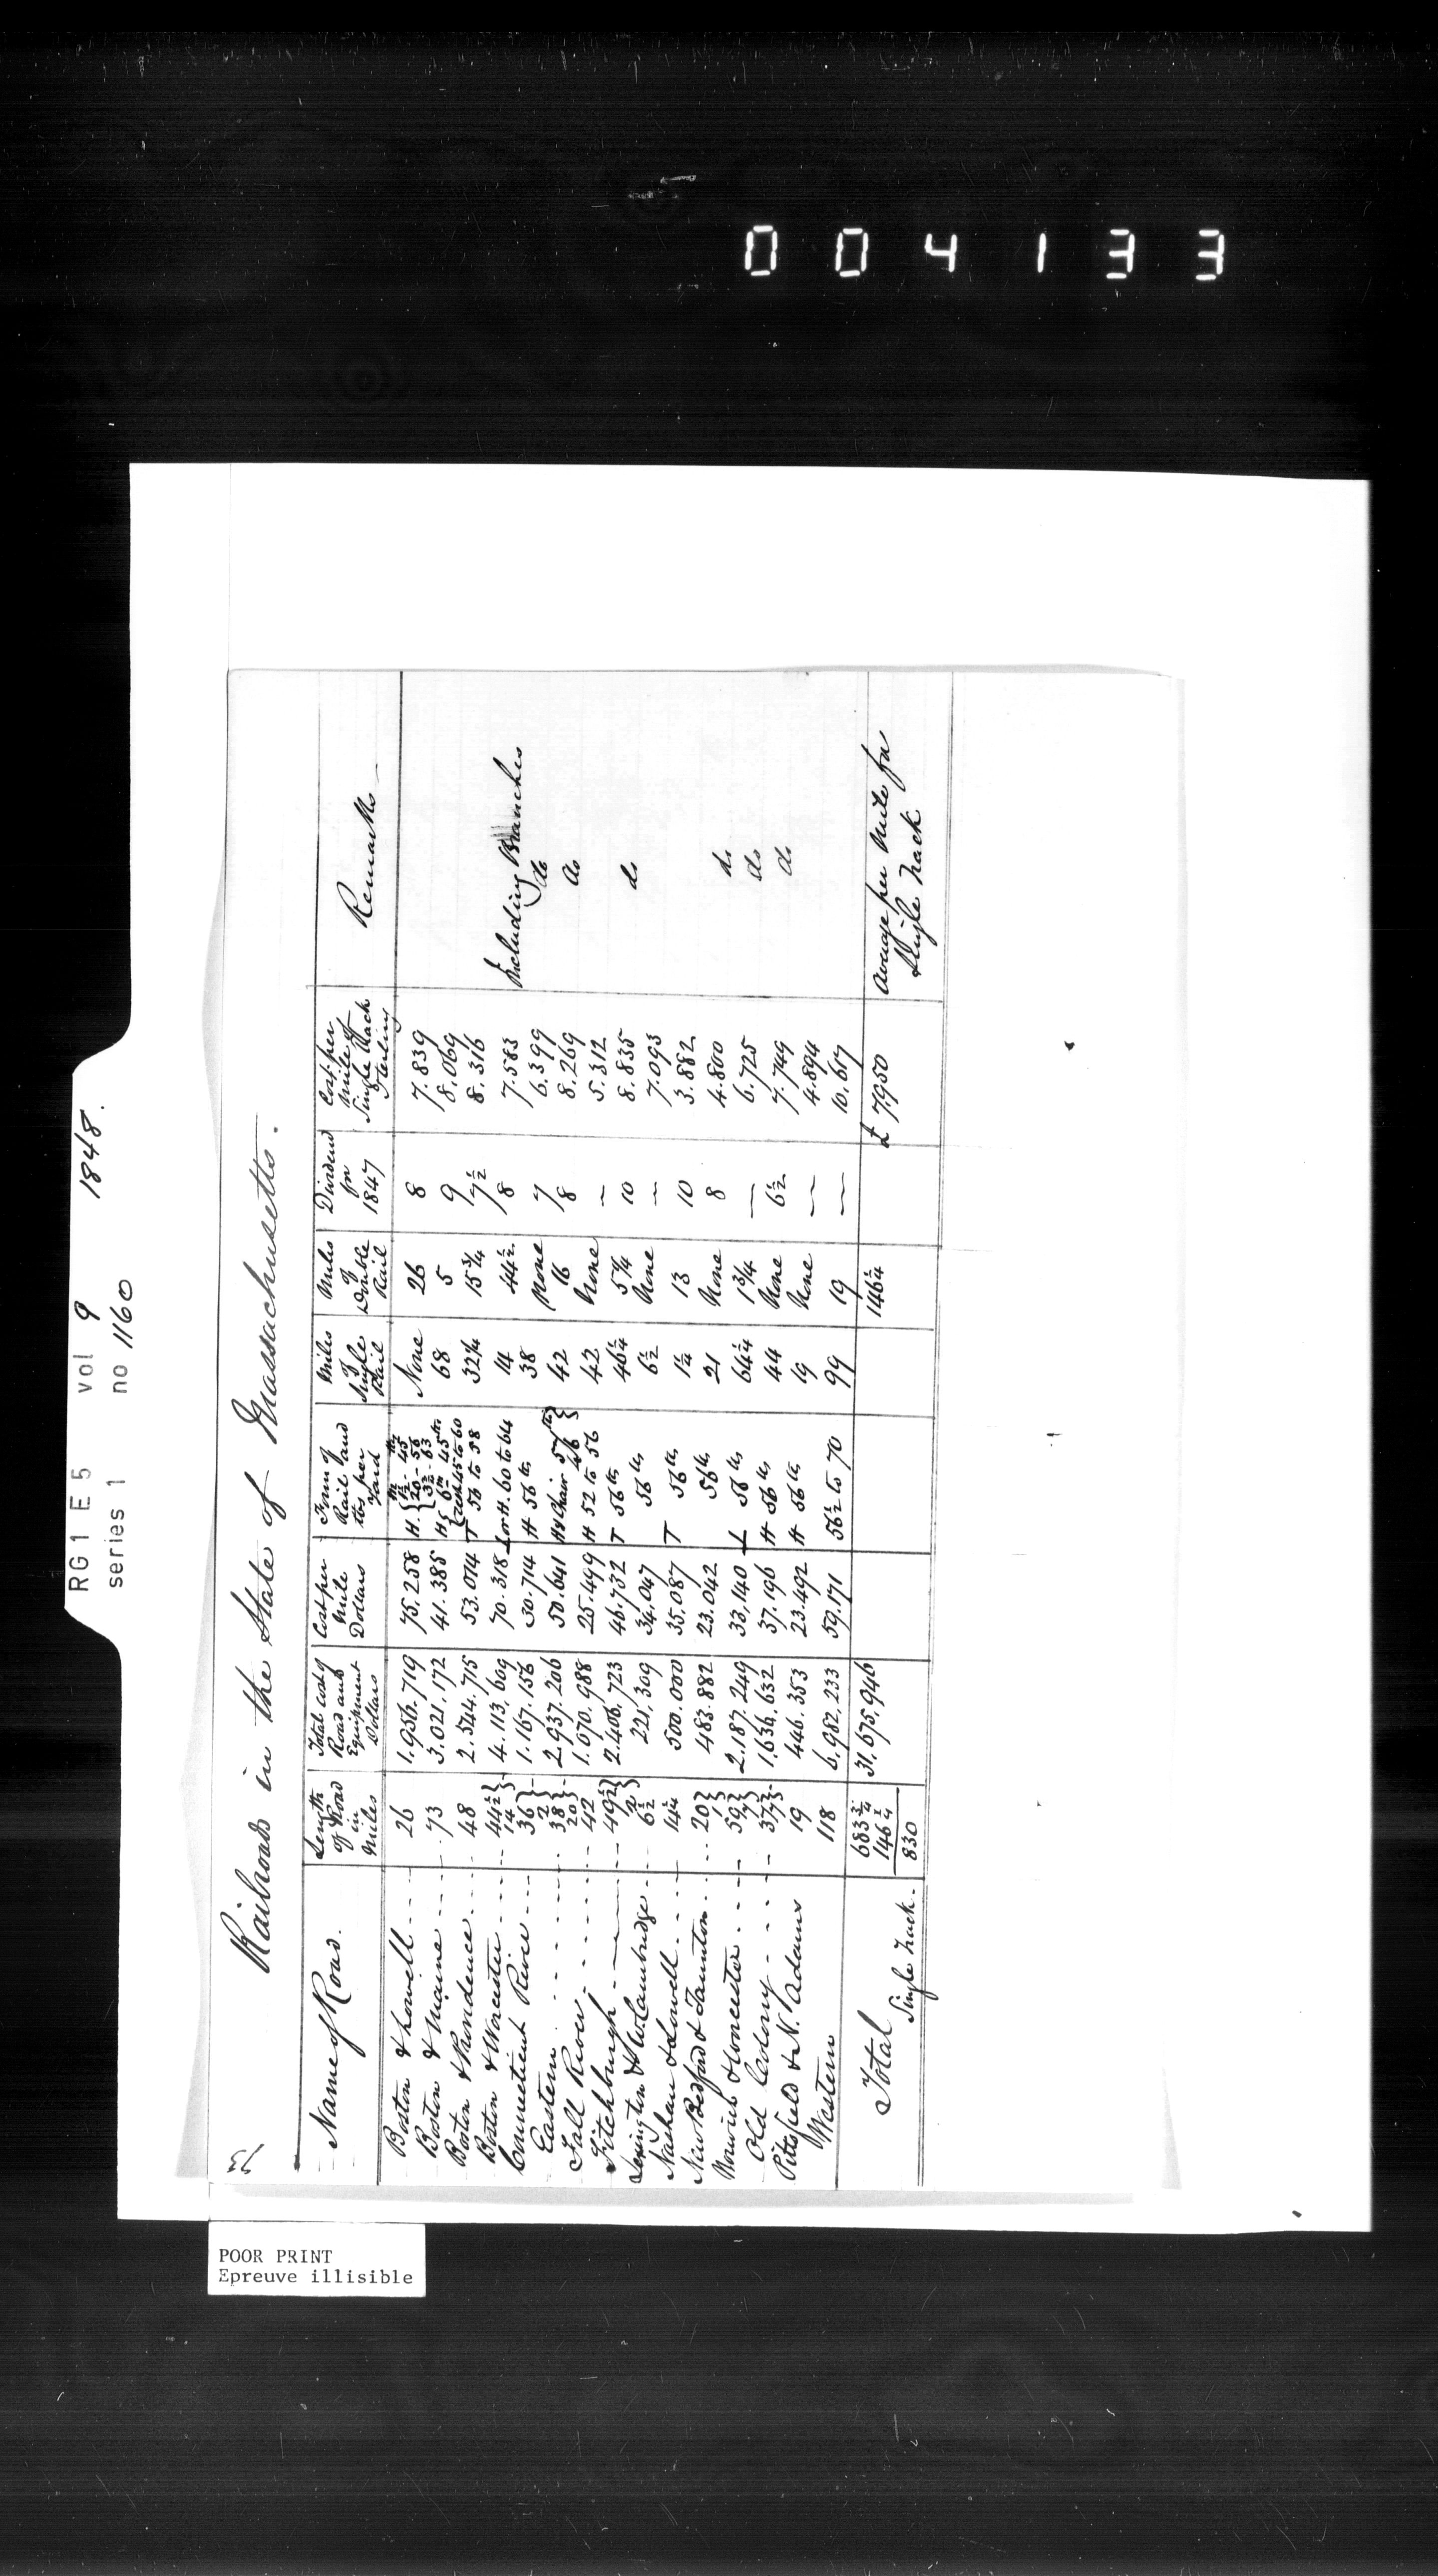 004133
RG1 E5 vol 9 1848.
series 1 no 1160
73
Railroads in the State of Massachusetts.
Name of Road. | Length of Road in Miles | Total cost of Road and Equipment Dollars | Cost per Mile Dollars | Form of Rail and lbs per Yard | Miles of Single Rail | Miles of Double Rail | Dividend for 1847 | Cost per Mile of Single Track Sterling | Remarks
Boston & Lowell | 26 | 1.956.719 | 75.258 | H. | None | 26 | 8 | 7.839
Boston & Maine | 73 | 3.021.172 | 41.385 | H | 68 | 5 | 9 | 8.069
Boston & Providence | 48 | 2.544.715 | 53.014 | T 56 to 58 | 32¼ | 15¾ | 7½ | 8.316
Boston & Worcester | 44½ 14 | 4.113.609 | 70.318 | L or H. 60 to 64 | 14 | 44½ | 8 | 7.583 | Including Branches
Connecticut River | 36 2 | 1.167.156 | 30.714 | H 56 lbs | 38 | None | 7 | 6.399 | do
Eastern | 38 20 | 2.937.206 | 50.641 | H & Chair | 42 | 16 | 8 | 8.269 | do
Fall River | 42 | 1.070.988 | 25.499 | H 52 to 56 | 42 | None | — | 5.312
Fitchburgh | 49½ 2 | 2.406.723 | 46.732 | T 56 lbs | 46¼ | 5¼ | 10 | 8.835 | do
Lexington & W. Cambridge | 6½ | 221.309 | 34.047 | 56 lbs | 6½ | None | — | 7.093
Nashau & Lowell | 14¼ | 500.000 | 35.087 | T 56 lbs | 1¼ | 13 | 10 | 3.882
New Bedford & Taunton | 20 1 | 483.882 | 23.042 | 56 lbs | 21 | None | 8 | 4.800 | do
Norwich & Worcester | 59 7 | 2.187.249 | 33.140 | L 56 lbs | 64¼ | 1¾ | — | 6.725 | do
Old Colony | 37 7 | 1.634.632 | 37.196 | H 56 lbs | 44 | None | 6½ | 7.749 | do
Pittsfield & N. Adams | 19 | 446.353 | 23.492 | H 56 lbs | 19 | None | — | 4.894
Western | 118 | 6.982.233 | 59.171 | 56½ to 70 | 99 | 19 | — | 10.617
Total | 683¾ | 31.675.946 | 146¼ | £ 7.950 | Average per Mile for Single Track
146¼
Single Track. 830
POOR PRINT
Epreuve illisible